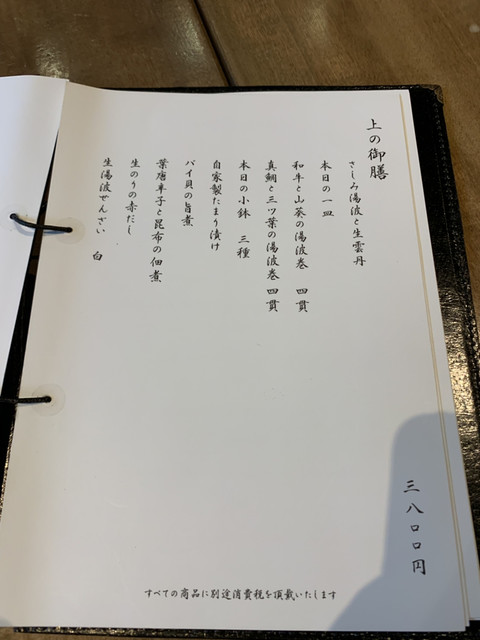 上の御膳
さしみ湯波と生雲丹
本日の一皿
和牛と山葵の湯波巻 四貫
真鯛と三ツ葉の湯波巻 四貫
本日の小鉢 三種
自家製たまり漬け
バイ貝の旨煮
葉唐辛子と昆布の佃煮
生のりの赤だし
生湯波ぜんざい 白
三八〇〇円
すべての商品に別途消費税を頂戴いたします